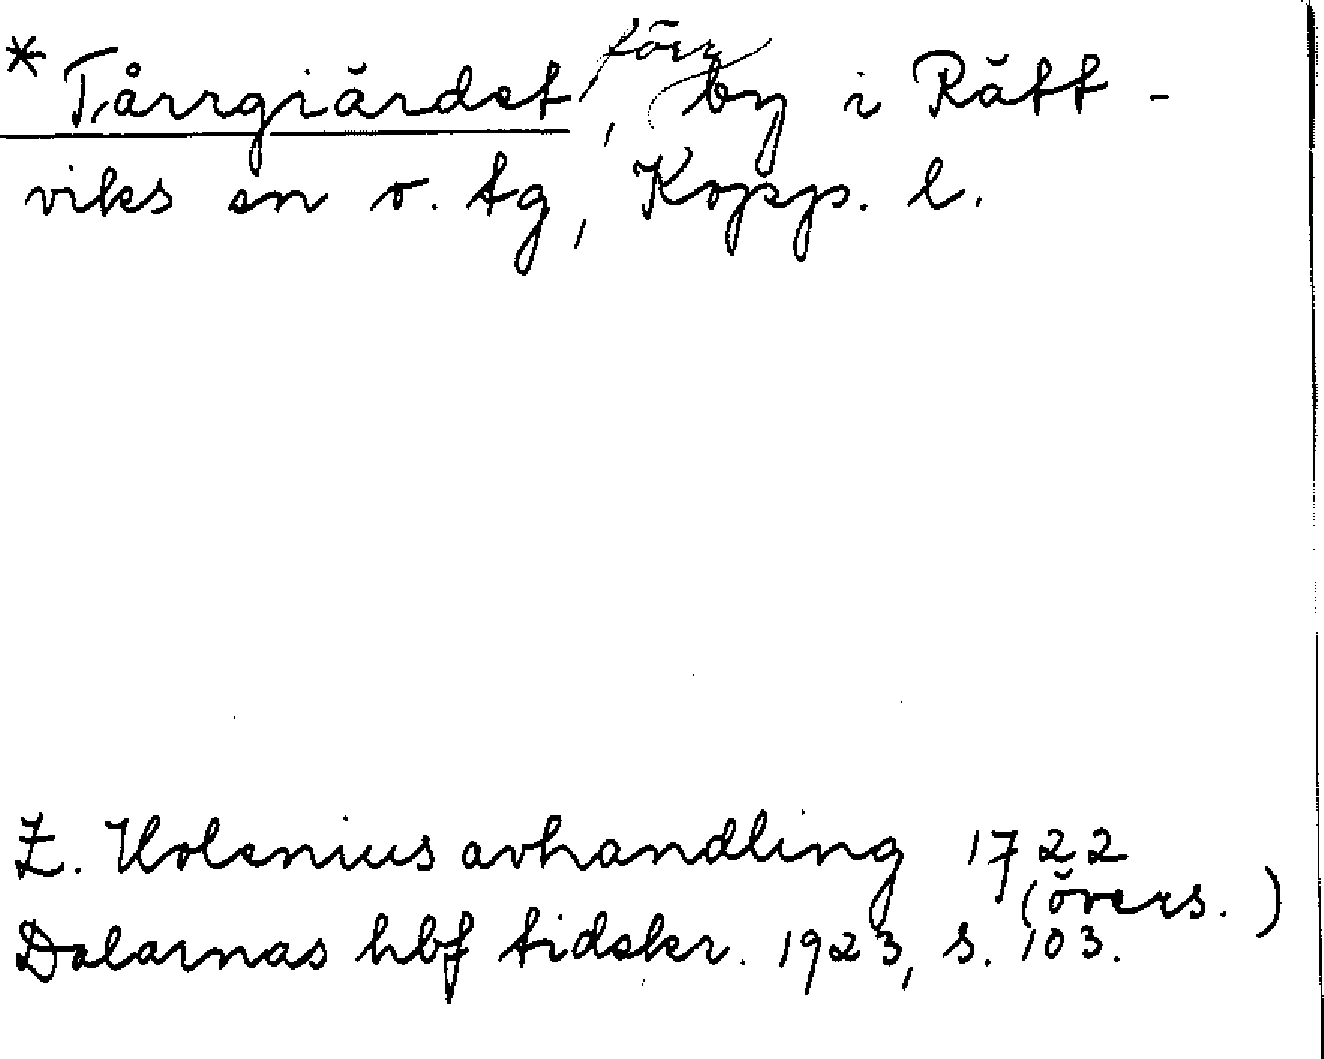 * Tårrgiärdet, förr by i Rätt-
viks sn o. tg, Kopp. l.
Z. Holenius avhandling 1722
(övers.)
Dalarnas hbf tidskr. 1923, s. 103.